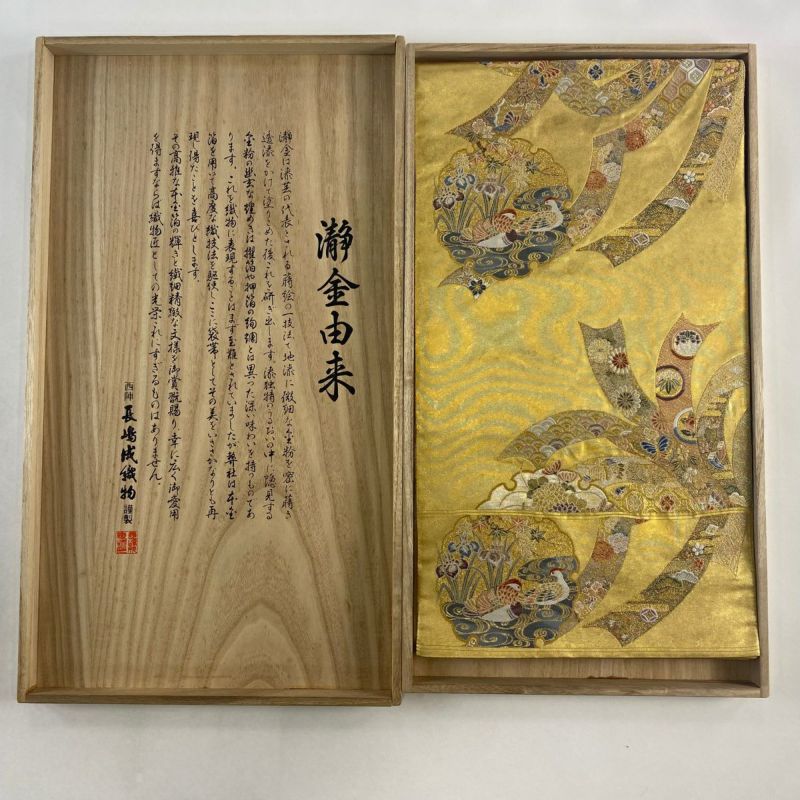 瀞金由来
瀞金は漆芸の代表とされる蒔絵の一技法で地漆に微細な金粉を密に蒔き
透漆をかけて塗りこめた後これを研ぎ出します。漆独特のうるおいの中に隠見する
金粉の幽玄な煌めきは摺箔や押箔の絢爛とは異った深い味わいを持つものであ
ります。これを織物に表現することはまず至難とされていましたが弊社は本金
箔を用いて高度な織技法を駆使しここに袋帯としてその美をいささかなりとも再
現し得たことを喜びとします。
その高雅な本金箔の輝きと繊細精緻な文様を御賞翫賜り幸に広く御愛用
を得ますならば織物匠としての光栄これにすぎるものはありません。
西陣 長嶋成織物 謹製